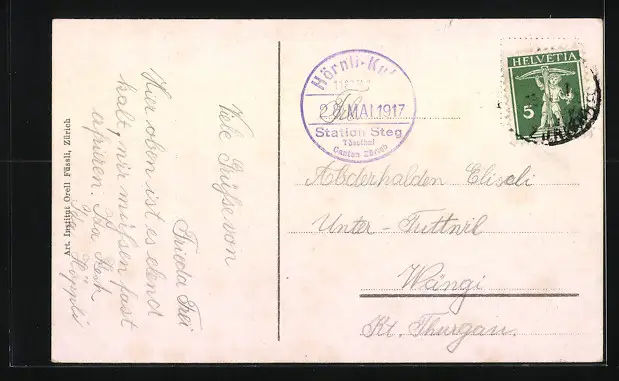 Viele Grüsse von
Frieda Frei
Hier oben ist es elend
kalt, wir müssen fast
Art. Institut Orell Füssli, Zürich
Hörnli-Kul
28. MAI 1917
Station Steg
Tössthal
Canton Zürich
HELVETIA
5
Frl.
Abderhalden Eliseli
Unter-Tuttwil
Wängi
Kt. Thurgau.